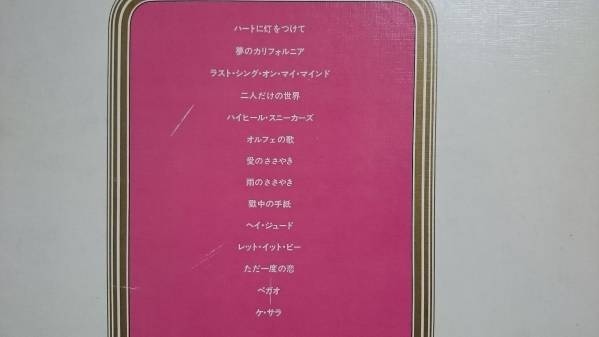 ハートに灯をつけて
夢のカリフォルニア
ラスト・シング・オン・マイ・マインド
二人だけの世界
ハイヒール・スニーカーズ
オルフェの歌
愛のささやき
雨のささやき
獄中の手紙
ヘイ・ジュード
レット・イット・ビー
ただ一度の恋
ベガオ
ケ・サラ